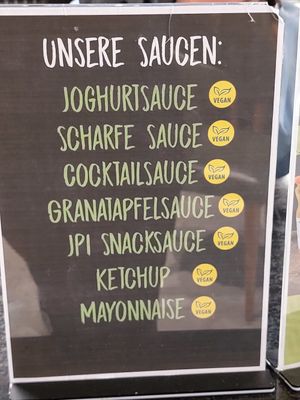 UNSERE SAUCEN:
JOGHURTSAUCE VEGAN
SCHARFE SAUCE VEGAN
COCKTAILSAUCE VEGAN
GRANATAPFELSAUCE VEGAN
JPI SNACKSAUCE VEGAN
KETCHUP VEGAN
MAYONNAISE VEGAN